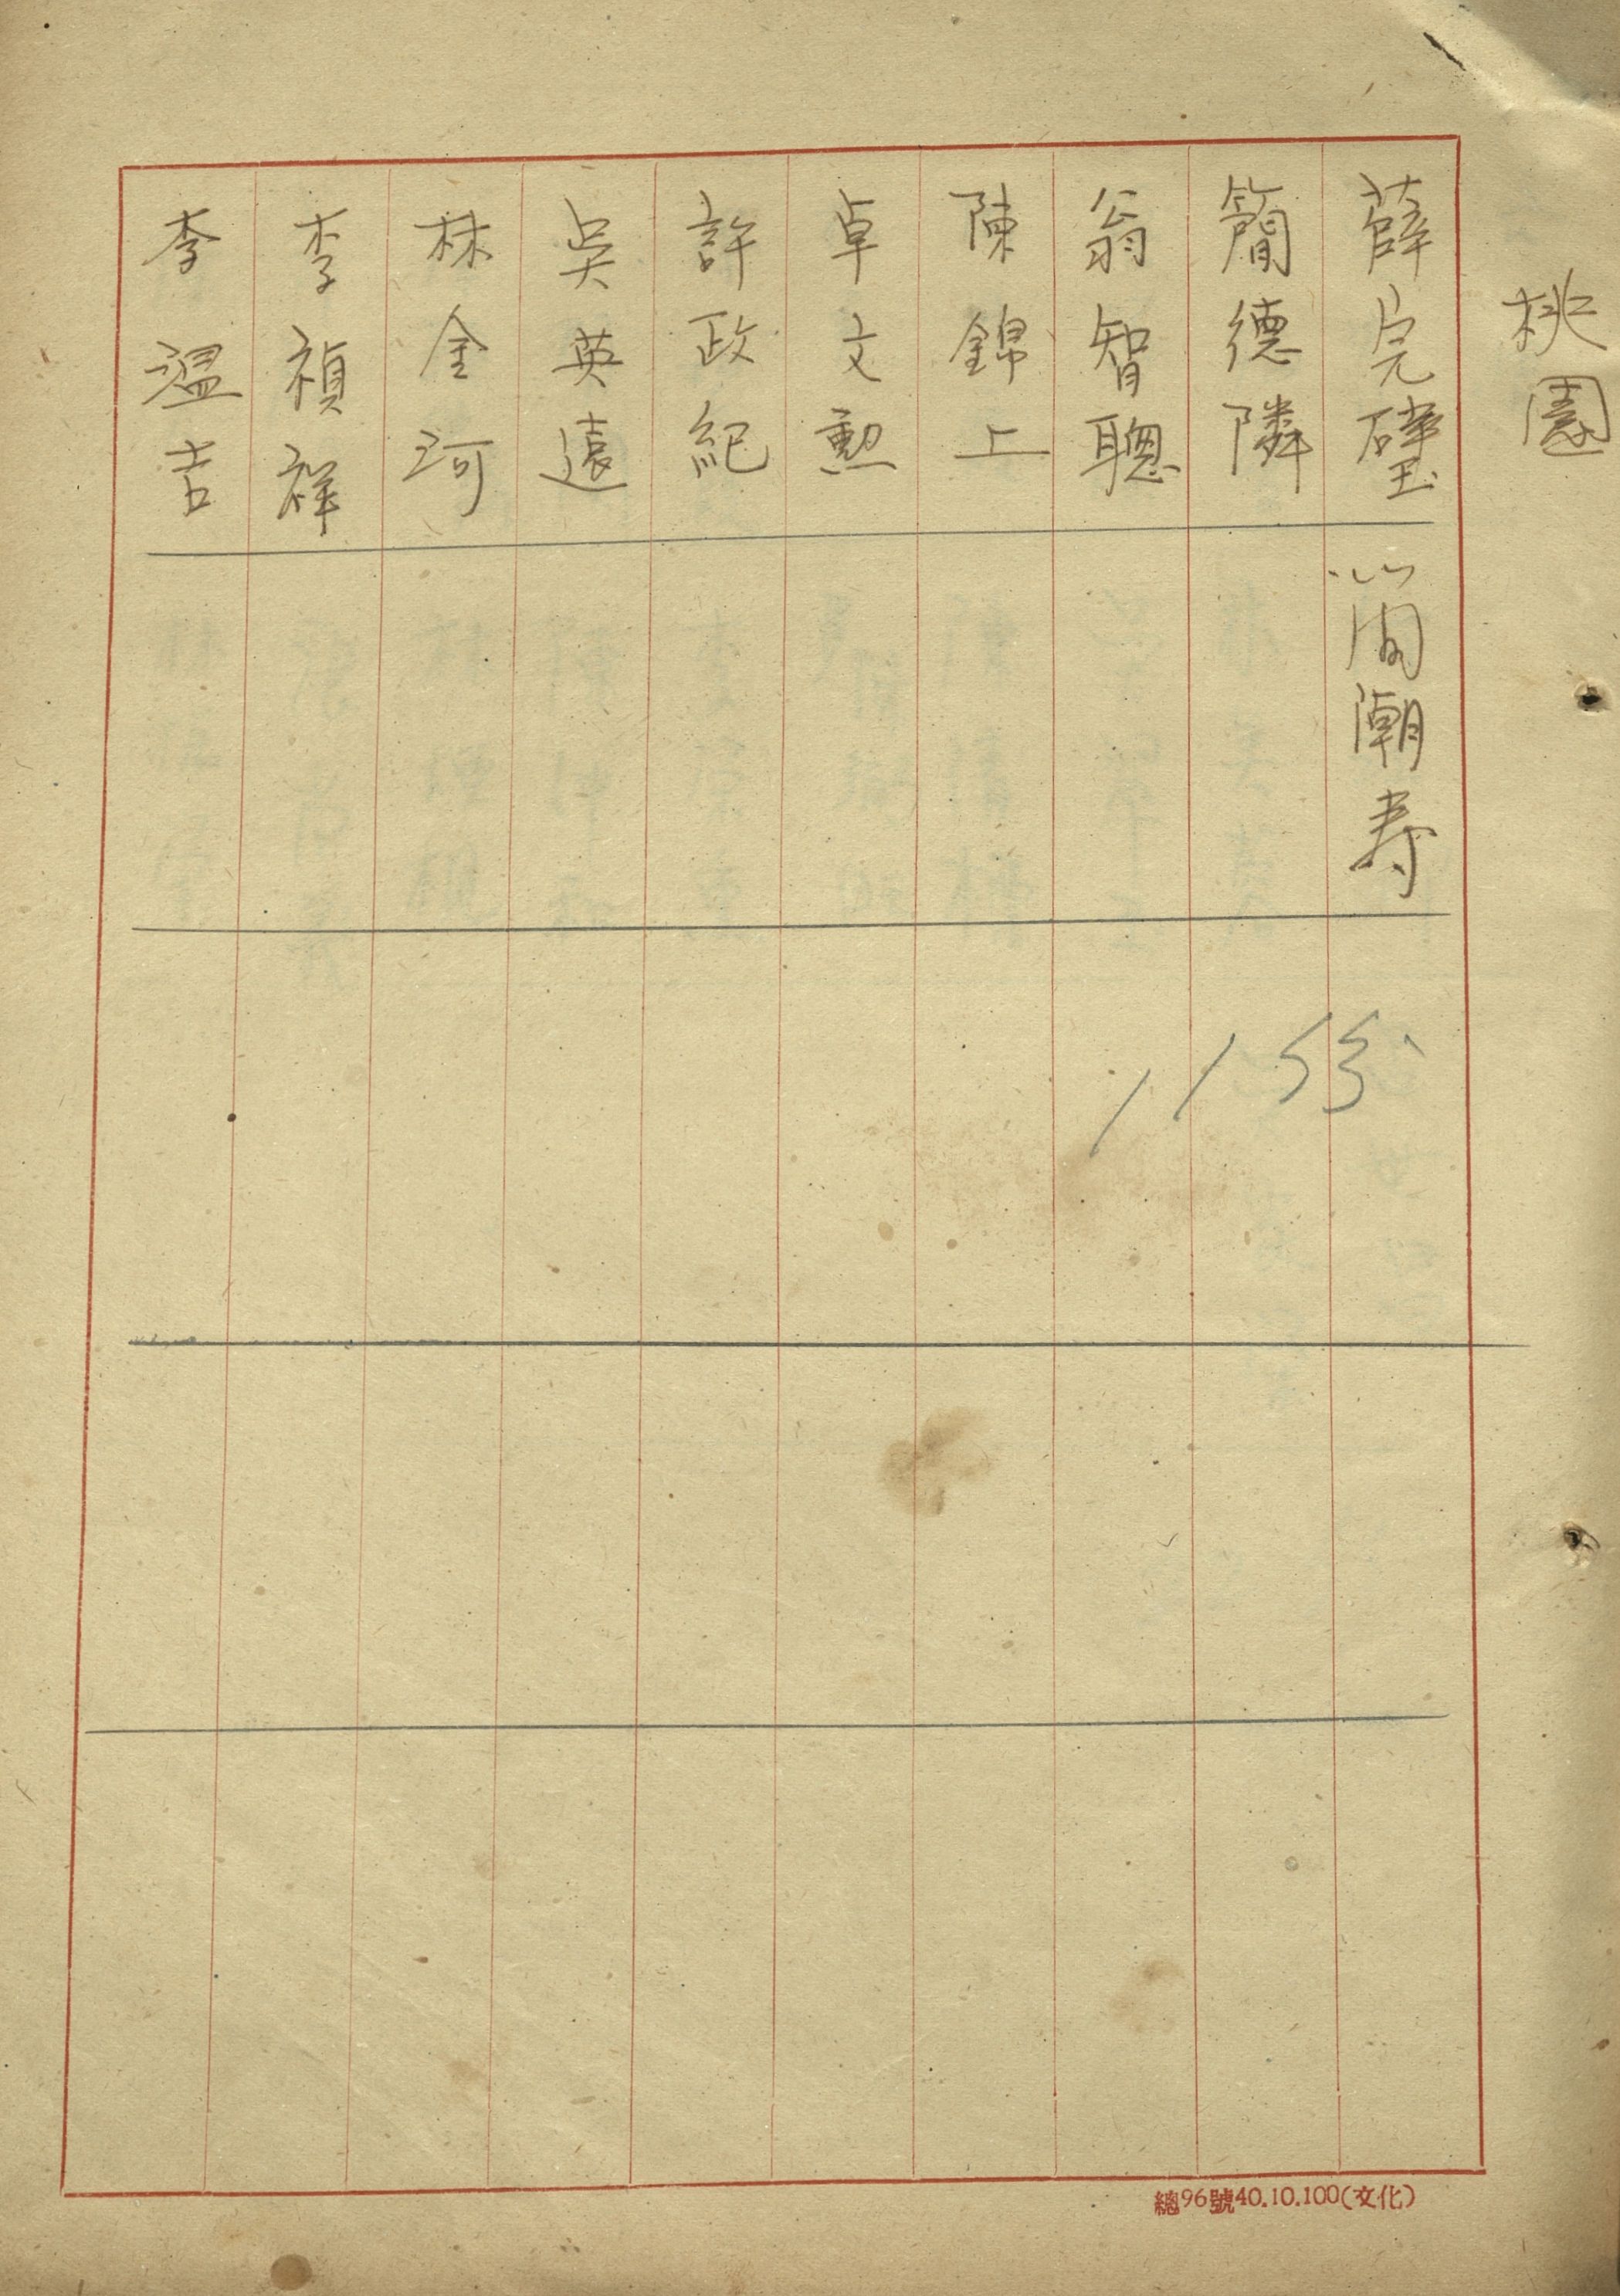 桃園
薛完璧
簡潮寿
簡德隣
翁智聰
陳錦上
卓文勲
許政紀
吳英遠
林金河
李禎祥
李溫吉
11份
總96號40.10.100(文化)